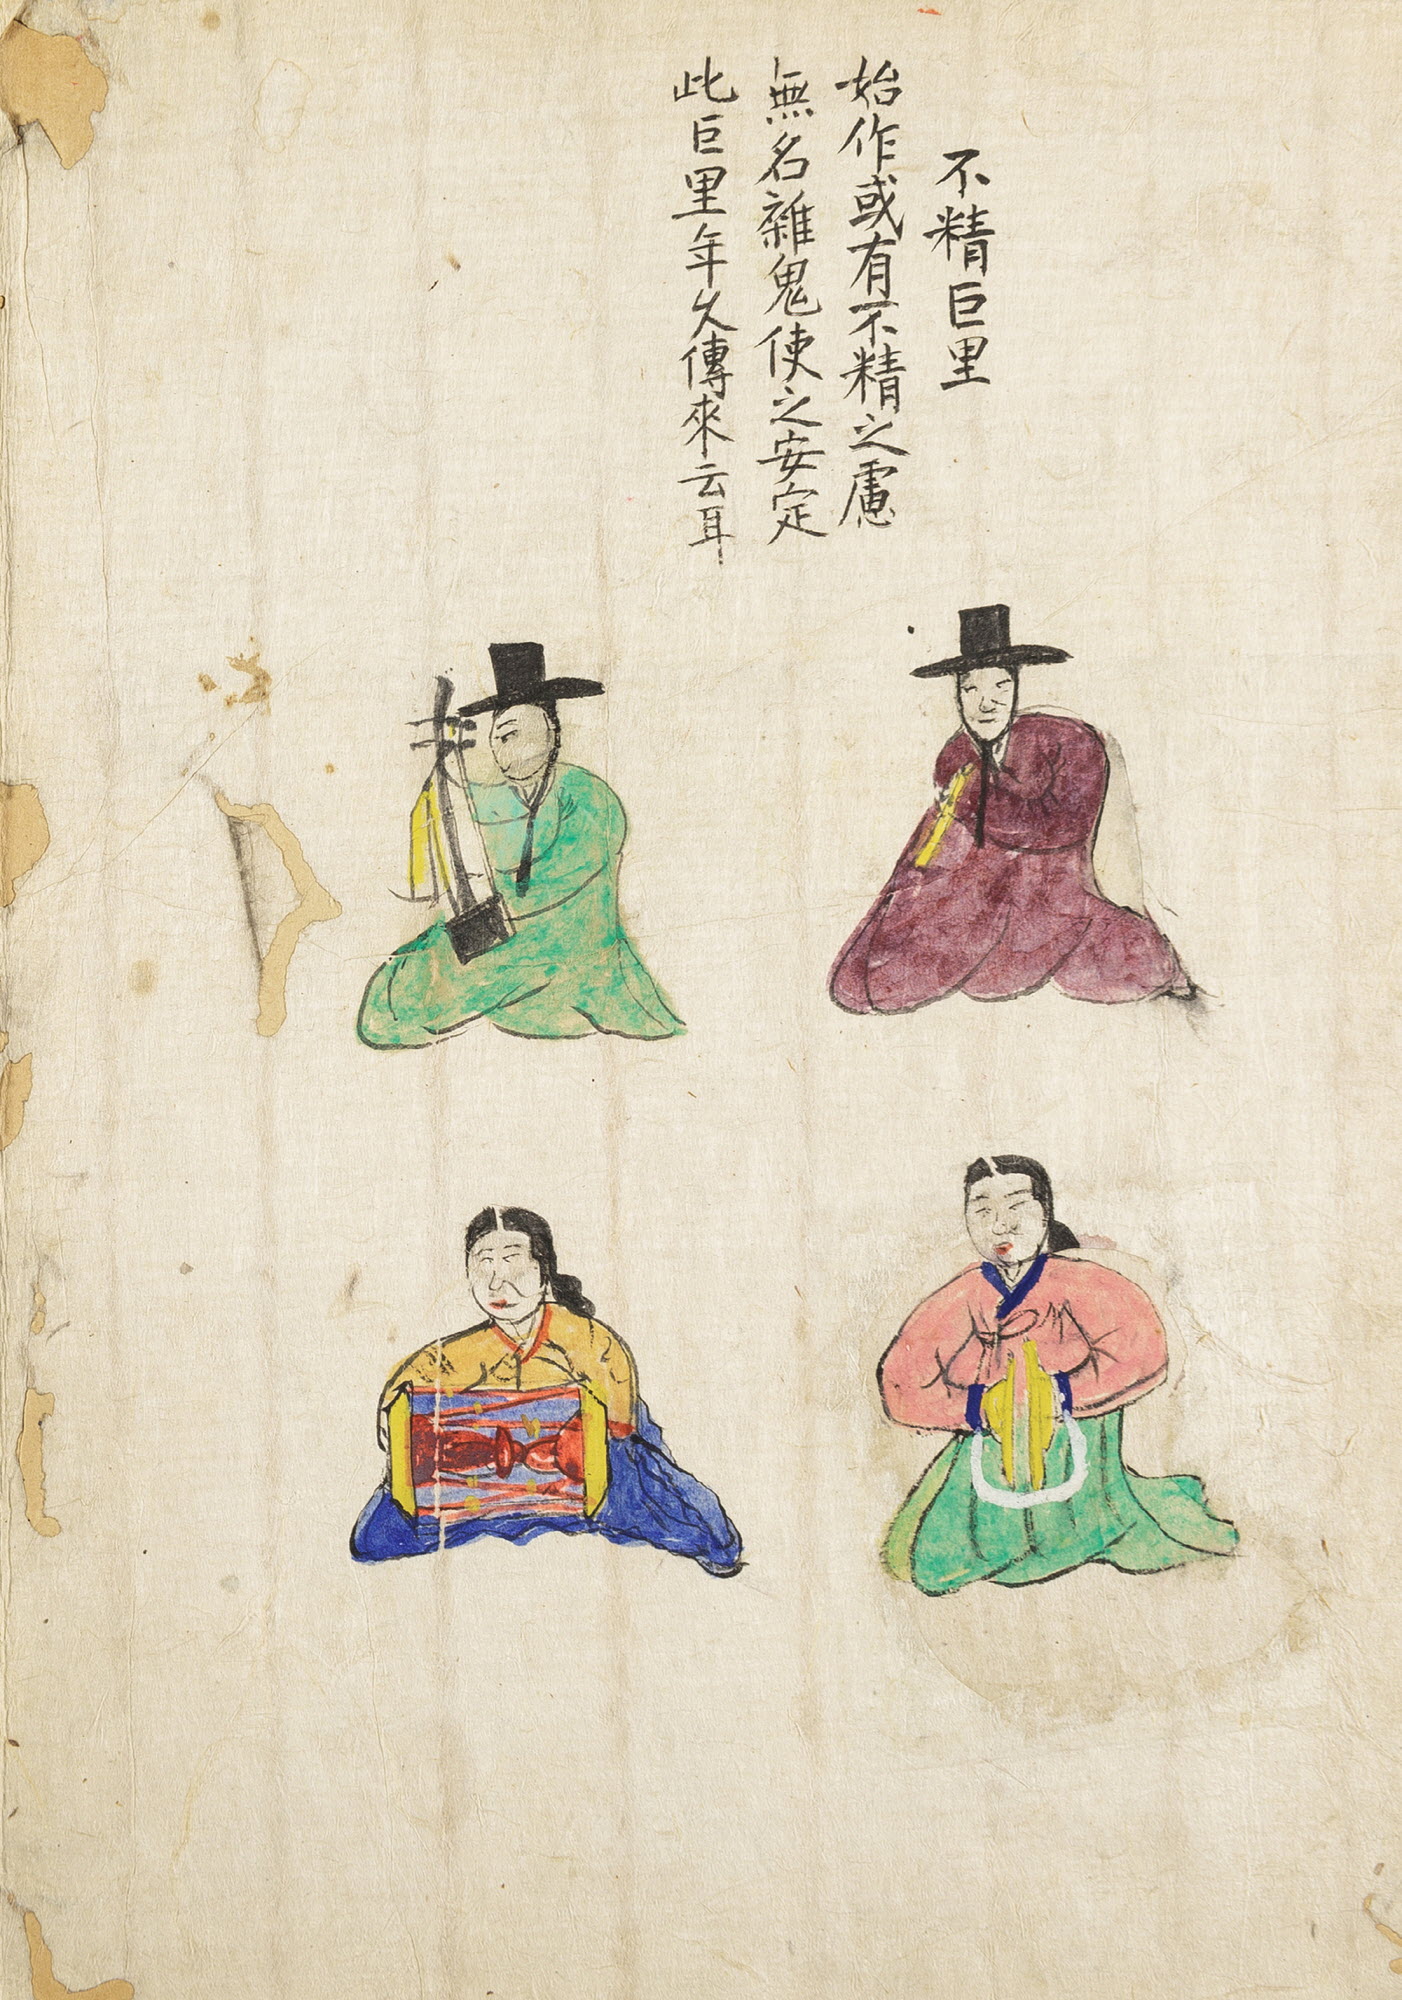 不精巨里
始作或有不精之慮
無名雜鬼使之安定
此巨里年久傳來云耳